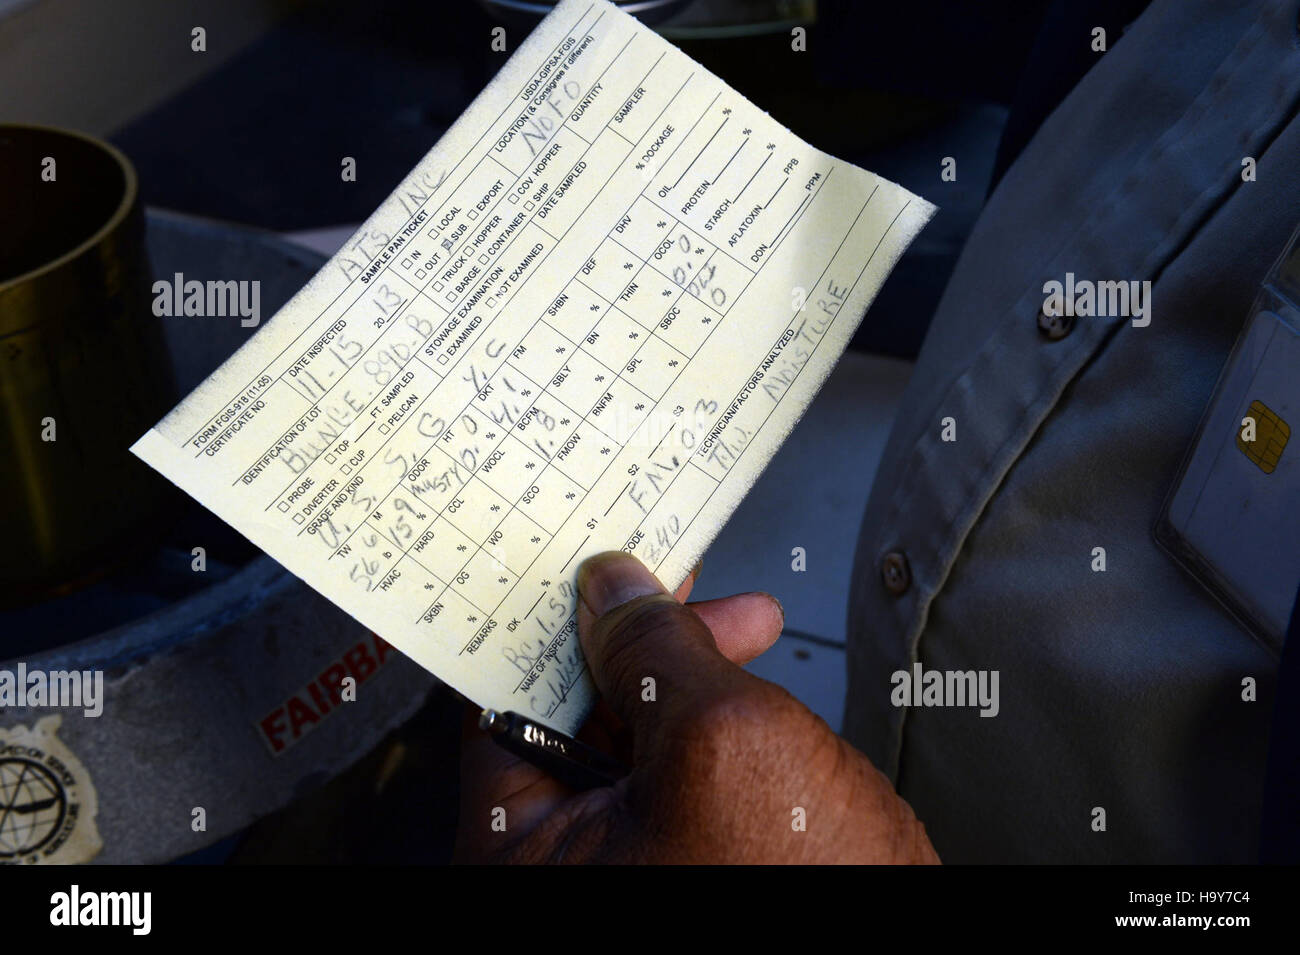 ATS INC
FORM FGIS-918 (11-05)
SAMPLE PAN TICKET
USDA-GIPSA-FGIS
CERTIFICATE NO.
DATE INSPECTED
11-15 2013
IN
OUT
LOCAL
SUB
EXPORT
LOCATION (& Consignee if different)
NOFO
IDENTIFICATION OF LOT
BUNGE. 890-B
TRUCK
HOPPER
COV. HOPPER
BARGE
CONTAINER
SHIP
QUANTITY
PROBE
TOP
FT. SAMPLED
DIVERTER
CUP
PELICAN
STOWAGE EXAMINATION
EXAMINED
NOT EXAMINED
DATE SAMPLED
SAMPLER
GRADE AND KIND
U. S. S. G Y. C
% DOCKAGE
TW 566 lb
M 159 %
ODOR MUSTY
HT 0
DKT 0.
FM 4.1
SHBN
DEF
DHV
OIL %
HVAC %
HARD %
CCL %
WOCL %
BCFM 1.8
SBLY %
BN %
THIN %
OCOL 0.0
PROTEIN %
STARCH %
SKBN %
OG %
WO %
SCO %
FMOW %
BNFM %
SPL %
SBOC %
0
AFLATOXIN PPB
DON PPM
REMARKS
IDK
S1
S2
S3
BC. 1.5
FM. 0.3
NAME OF INSPECTOR
CODE
840
TECHNICIAN/FACTORS ANALYZED
T.W. MOISTURE
FAIRBA
alamy
Image ID: H9Y7C4
www.alamy.com